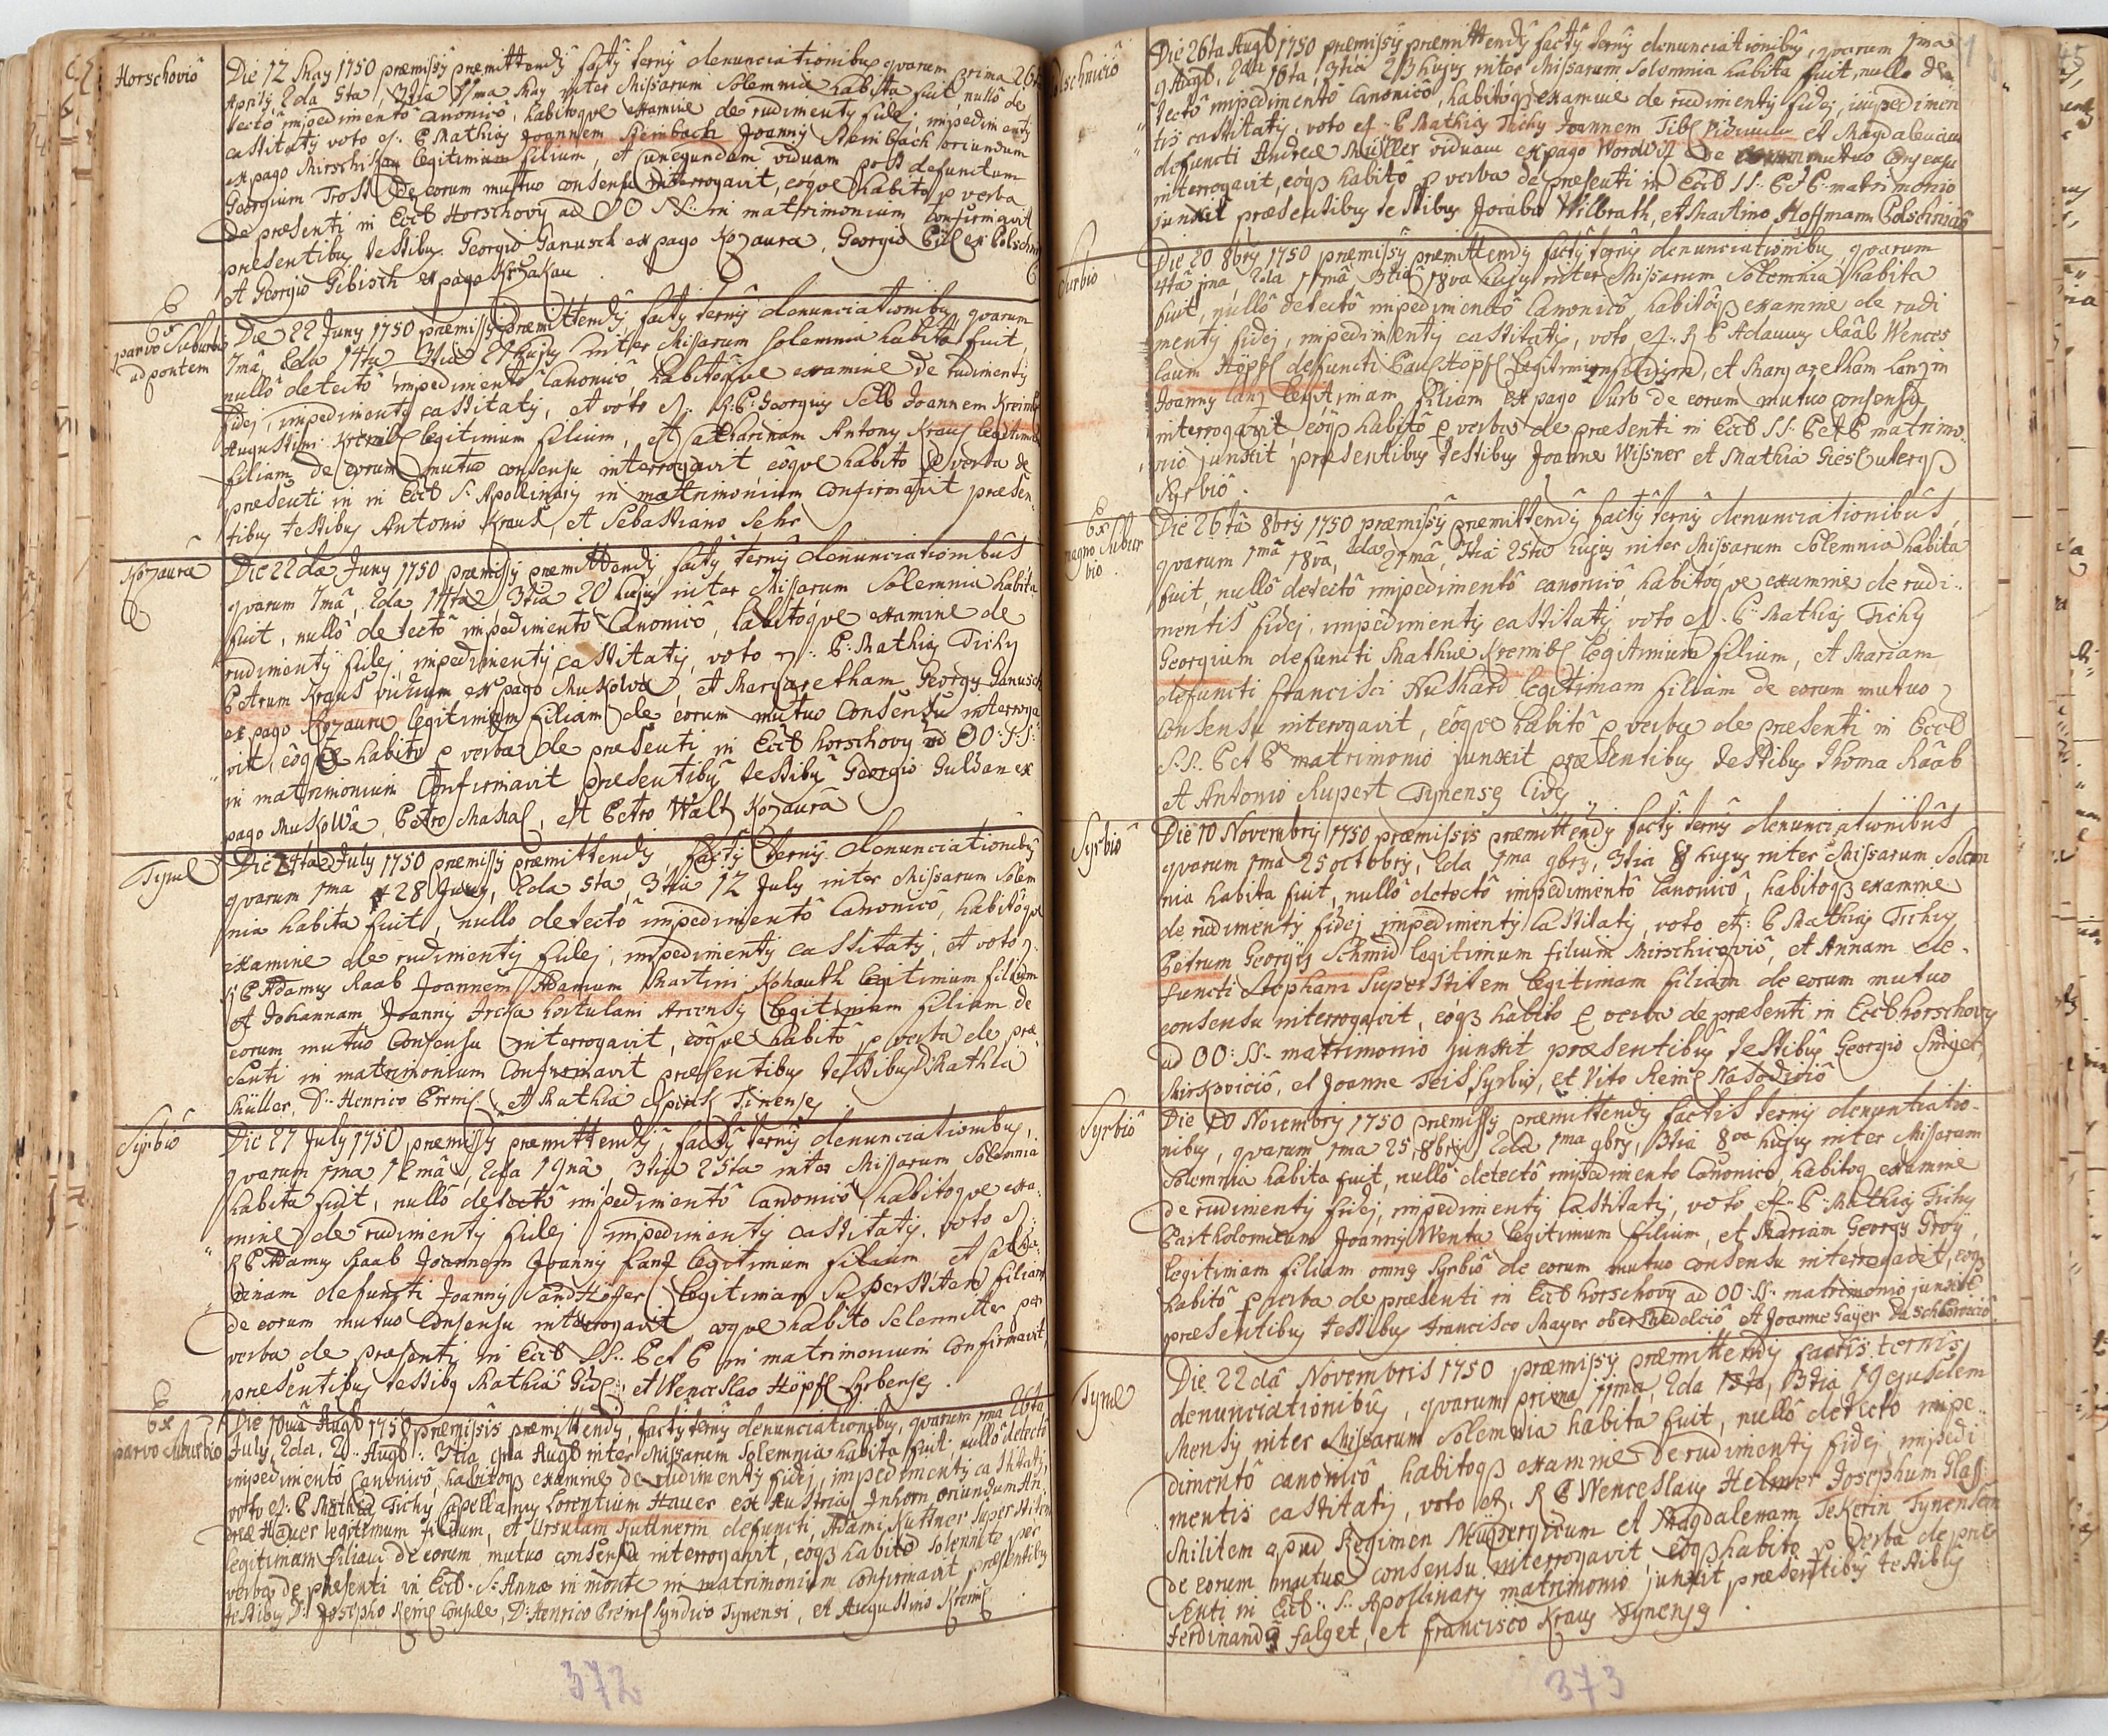 Horschoviô
Die 12 May 1750 præmissis præmittendis factis ternis denunciationibus quarum prima 26ta
Aprilis, 2da 5ta, 3tia ma May inter Missarum Solemnia habita fuit, nullô de
tectô impedimentô Canonicô, habitoque examine de rudimentis fidej, impedimentis
castitatis voto et P Mathias Joannem Steinbach Joannis Steinbach oriundum
ex pago Mirschikau legitimum filium, et Cunegundam viduam post defunctum
Georgium Trost de eorum mutuo consensu interrogavit, eôque habitô p verba
de præsenti in Eccl Horschoviy ad OO SS: in matrimonium Confirmavit
præsentibus testibus Georgio Ganusch ex pago Kozaura, Georgio Pißl ex Polschni
et Georgio Gibisch ex pago Krzakau
Ex
parvo Suburbio
ad pontem
Die 22 Juny 1750 præmissis præmittendis, factis ternis denunciationibus quarum
7mâ, 2da 14ta 3tia 21 hujus inter Missarum Solemnia habita fuit,
nullô detectô impedimentô Canonicô, habitôque examine de rudimentis
fidej, impedimentis castitatis, et voto et R: P: Georgius Selb Joannem Kreiml
Augustini Kreiml legitimum filium, et Catharinam Antony Kraus legitimam
filiam de eorum mutuo consensu interrogavit eôque habito p verba de
præsenti in in Eccl S. Apollinaris in matrimonium confirmavit præsen-
tibus testibus Antonio Kraus, et Sebastiano Sehr
Kozaura
Die 22da Juny 1750 præmissis præmittendis factis ternis denunciationibus
quarum 7mâ, 2da 14ta, 3tia 20 hujus inter Missarum Solemnia habita
fuit, nullô detectô impedimentô Canonicô, habitôque examine de
rudimentis fidej impedimentis castitatis, voto et: P: Mathias Tichy
Petrum Kraus viduum ex pago Mukolva, et Margaretham Georgy Ganusch
ex pago Kozaura legitimam filiam de eorum mutuo Consensu interroga
vit, eôq habito p verba de præsenti in Eccl horschovy ad OO: SS:
in matrimonium Confirmavit præsentibus testibus Georgio Guldan ex
pago Mukowâ, Petro Maxal, et Petro Walt Kozaurâ
Tynæ
Die 14ta July 1750 præmissis præmittendis, factis ternis denunciationibus
quarum 1ma 28 Juny, 2da 5ta, 3tia 12 July inter Missarum Solem
nia habita fuit, nullo detectô impedimentô Canonicô, habitôque
examine de rudimentis fidej, impedimentis castitatis, et voto et:
R P Adamus Raab Joannem Adamum Martini Kohauth legitimum filium
et Johannam Joannis Ircka hortulani Arcensis legitimam filiam de
eorum mutuo Consensu interrogavit, eôque habitô p verba de præ
senti in matrimonium Confirmavit præsentibus testibus Mathia
Müller, D: Henrico Preml, et Mathia Tinensg
Syrbiô
Die 27 July 1750 præmissis præmittendis, factis ternis denunciationibus,
quarum 1ma 12mâ, 2da 19nâ, 3tia 25ta inter Missarum Solemnia
habita fuit, nullô detectô impedimentô Canonicô, habitoque exa:
mine de rudimentis fidej impedimentis castitatis, voto et:
R P Adamus Raab Joannem Joannis Lanz legitimum filium et Catha:
rinam defuncti Joannis Sandhöffer legitimam Superstitem filiam
de eorum mutuo Consensu interrogavit eoque habito Solemniter per
verba de præsentis in Eccl SS: P et P in matrimonium Confirmavit,
præsentibus testibus Mathiâ Gißl: et Wenceslao Höpfl Syrbensg.
Ex
parvo Suburbio
Die 10ma Augl 1750 præmissis præmittendis, factis ternis denunciationibus, quarum 1ma 26ta
July, 2da, 2.. Augl.. 3tia 9na Augl inter Missarum Solemnia habita fuit: nullô detectô
impedimentô Canonicô, habitoq examine de rudimentis fidej, impedimentis castitatis,
voto et: P Mathias Tichy Capellanus Lorentium Hauer ex Austria Inhorn oriundum An:
dreæ Hauer legitimum filium, et Ursulam Kuttnerin defuncti, Adami Kuttner Superstitem
legitimam filiam de eorum mutuo consensu interrogavit, eoq habitô Solemniter per
verba de præsenti in Eccl. S: Annæ in monte in matrimonium Confirmavit præsentibus
testibus D: Josepho Reiml Consule, D: Henrico Preml Syndico Tynensi, et Augustino Kreiml
372
olschniciô
Die 26ta Augl 1750 præmissis præmittendis factis ternis denunciationibus, quarum 1ma
9 Augl, 2da 16ta, 3tia 23 hujus inter Missarum Solemnia habita fuit, nullo de
tectô impedimentô Canonicô, habitoq examine de rudimentis fidej, impedimen
tis castitatis, voto et. P Mathias Tichy Joannem Tißl viduum et Magdalenam
defuncti Andreæ Müller viduam ex pago Wordwis de mutuo Consensu
interrogavit, eôq habitô p verba de præsenti in Eccl SS: P et P: matrimonio
junxit præsentibus testibus Jacobo Wilbrath, et Martino Hoffmann Polschniciô
Surbio
Die 20 8bris 1750 præmissis præmittendis factis ternis denunciationibus, quarum
1ma, 2da 11mâ 3tia 18va hujus inter Missarum Solemnia habita
fuit, nullô detectô impedimentô Canonicô, habitôq examine de rudi
mentis fidej, impedimentis castitatis, voto et: R P Adamus Raab Wences
laum Höpfl defuncti Pauli Höpfl legitimum filium, et Margaretham Lanzin
Joannis Lanz legitimam filiam ex pago Surb de eorum mutuo consensu
interrogavit, eôq habitô p verba de præsenti in Eccl SS: P et P matrimo..
nio junxit præsentibus testibus Joanne Wißner et Mathia Gießl uterq
Syrbiô.
Ex
magno Subur
bio
Die 26tâ 8bris 1750 præmissis præmittendis factis ternis denunciationibus,
quarum 1mâ 18va, 2da 21mâ, 3tia 25ta hujus inter Missarum Solemnia habita
fuit, nullô detectô impedimentô canonicô, habitôque examine de rudi..
mentis fidej, impedimentis castitatis, voto et. P: Mathias Tichy
Georgium defuncti Mathiæ Kreml legitimum filium, et Mariam
defuncti Francisci Nushard legitimam filiam de eorum mutuo
Consensu interogavit, eôque habitô p verba de præsenti in Eccl
S.S. P et P matrimonio junxit præsentibus testibus Thoma Raab
et Antonio Rupert Tynensg Civ
Syrbiô
Die 10 Novembris 1750 præmissis præmittendis factis ternis denunciationibus
quarum 1ma 25 octobris, 2da 1ma 9bris, 3tia 8 hujus inter Missarum Solem
nia habita fuit, nullô detectô impedimentô Canonicô, habitoq examine
de rudimentis fidej impedimentis Castitatis, voto et: P Mathias Tichy
Petrum Georgy Schmid legitimum filium Mirschicoviô, et Annam de-
functi Stephani Superstitem legitimam filiam de eorum mutuo
consensu interrogavit, eoq habito p verba de præsenti in Eccl horschovy
ad OO: SS. matrimonio junxit præsentibus testibus Georgio Singer,
Mirkoviciô, et Joanne Teisl Syrbiô, et Vito Reiml
Syrbiô
Die 10 Novembris 1750 præmissis præmittendis factis ternis denuntiatio-
nibus, quarum 1ma 25 8bris 2da 1ma 9bris, 3tia 8va hujus inter Missarum
Solemnia habita fuit, nullô detectô impedimento Canonico, habitoq examine
de rudimentis fidej, impedimentis Castitatis, voto et: P: Mathias Tichy
Bartholomæum Joannis Wenta legitimum filium, et Mariam Georgy Groÿ
legitimam filiam omnes Syrbiô de eorum mutuo consensu interrogavit, eoq
habitô p verba de præsenti in Eccl horschovy ad OO: SS. matrimonio junxit
præsentibus testibus Francisco Mayer et Joanne Gaÿer
Tynæ
Die 22dâ Novembris 1750 præmissis præmittendis factis ternis
denunciationibus, quarum prima 11ma, 2da 15ta, 3tia 19 ejusdem
Mensis inter Missarum Solemnia habita fuit, nullô detecto impe..
dimentô canonicô, habitoq examine de rudimentis fidej impedi
mentis castitatis, voto et. R P Wenceslaus Helmer Josephum Glas:
Militem apud Regimen Neüpergicum et Magdalenam Tekerin Tynensem
de eorum mutuo consensu interrogavit, eoq habito p verba de præ
senti in Eccl.. S: Apollinary matrimonio junxit præsentibus testibus
Ferdinando Falget, et Francisco Kraus Tynensg.
373